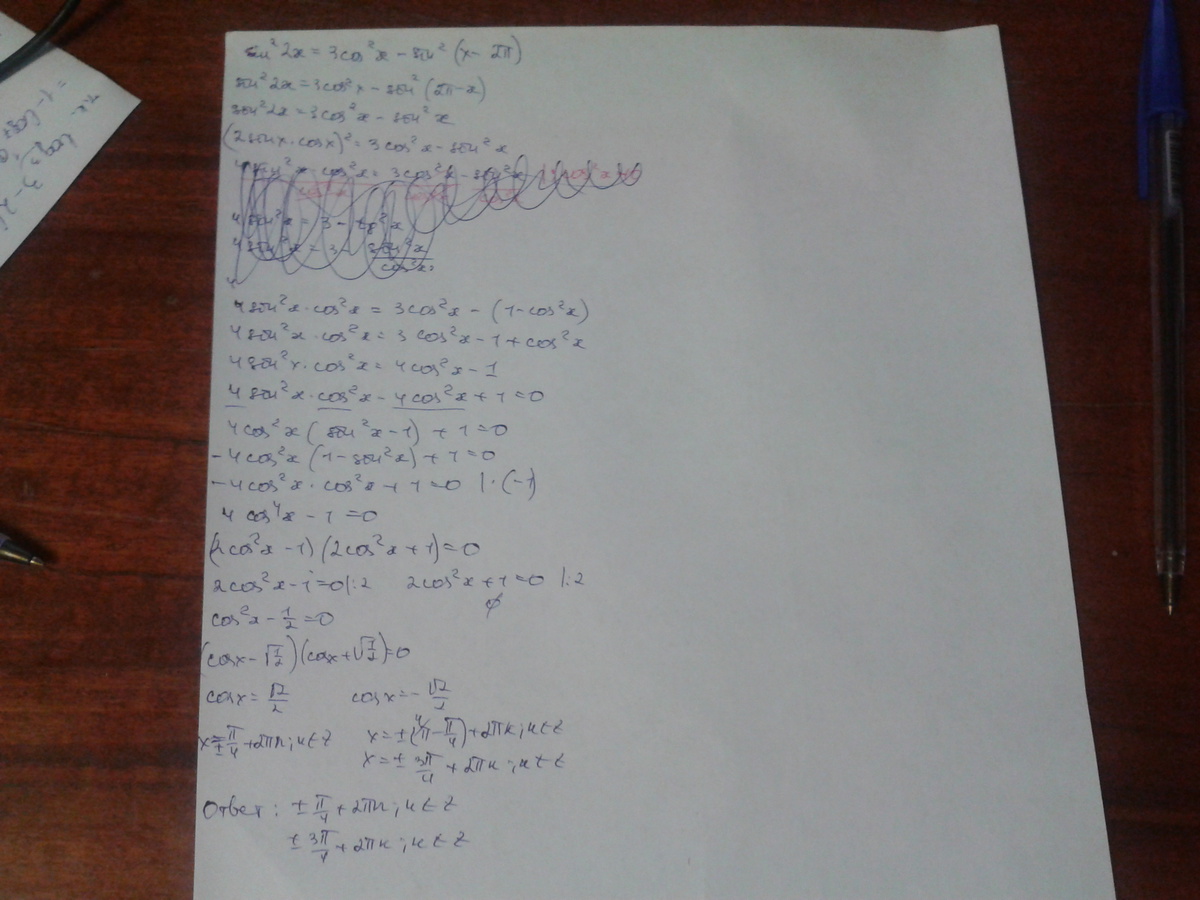 sin²2x = 3cos²x - sin²(x - 2π)
sin²2x = 3cos²x - sin²(2π - x)
sin²2x = 3cos²x - sin²x
(2sinx·cosx)² = 3cos²x - sin²x
4sin²x·cos²x = 3cos²x - sin²x
4sin²x = 3 - tg²x
4sin²x = 3 - sin²x/cos²x
4sin²x·cos²x = 3cos²x - (1-cos²x)
4sin²x·cos²x = 3cos²x - 1 + cos²x
4sin²x·cos²x = 4cos²x - 1
4sin²x·cos²x - 4cos²x + 1 = 0
4cos²x(sin²x - 1) + 1 = 0
-4cos²x(1 - sin²x) + 1 = 0
-4cos²x·cos²x + 1 = 0 |·(-1)
4cos⁴x - 1 = 0
(2cos²x - 1)(2cos²x + 1) = 0
2cos²x - 1 = 0 |:2 2cos²x + 1 = 0 |:2
∅
cos²x - 1/2 = 0
(cosx - √1/2)(cosx + √1/2) = 0
cosx = √2/2 cosx = -√2/2
x = ±π/4 + 2πn; n∈Z x = ±(π - π/4) + 2πk; k∈Z
x = ±3π/4 + 2πk; k∈Z
Ответ: ±π/4 + 2πn; n∈Z
±3π/4 + 2πk; k∈Z